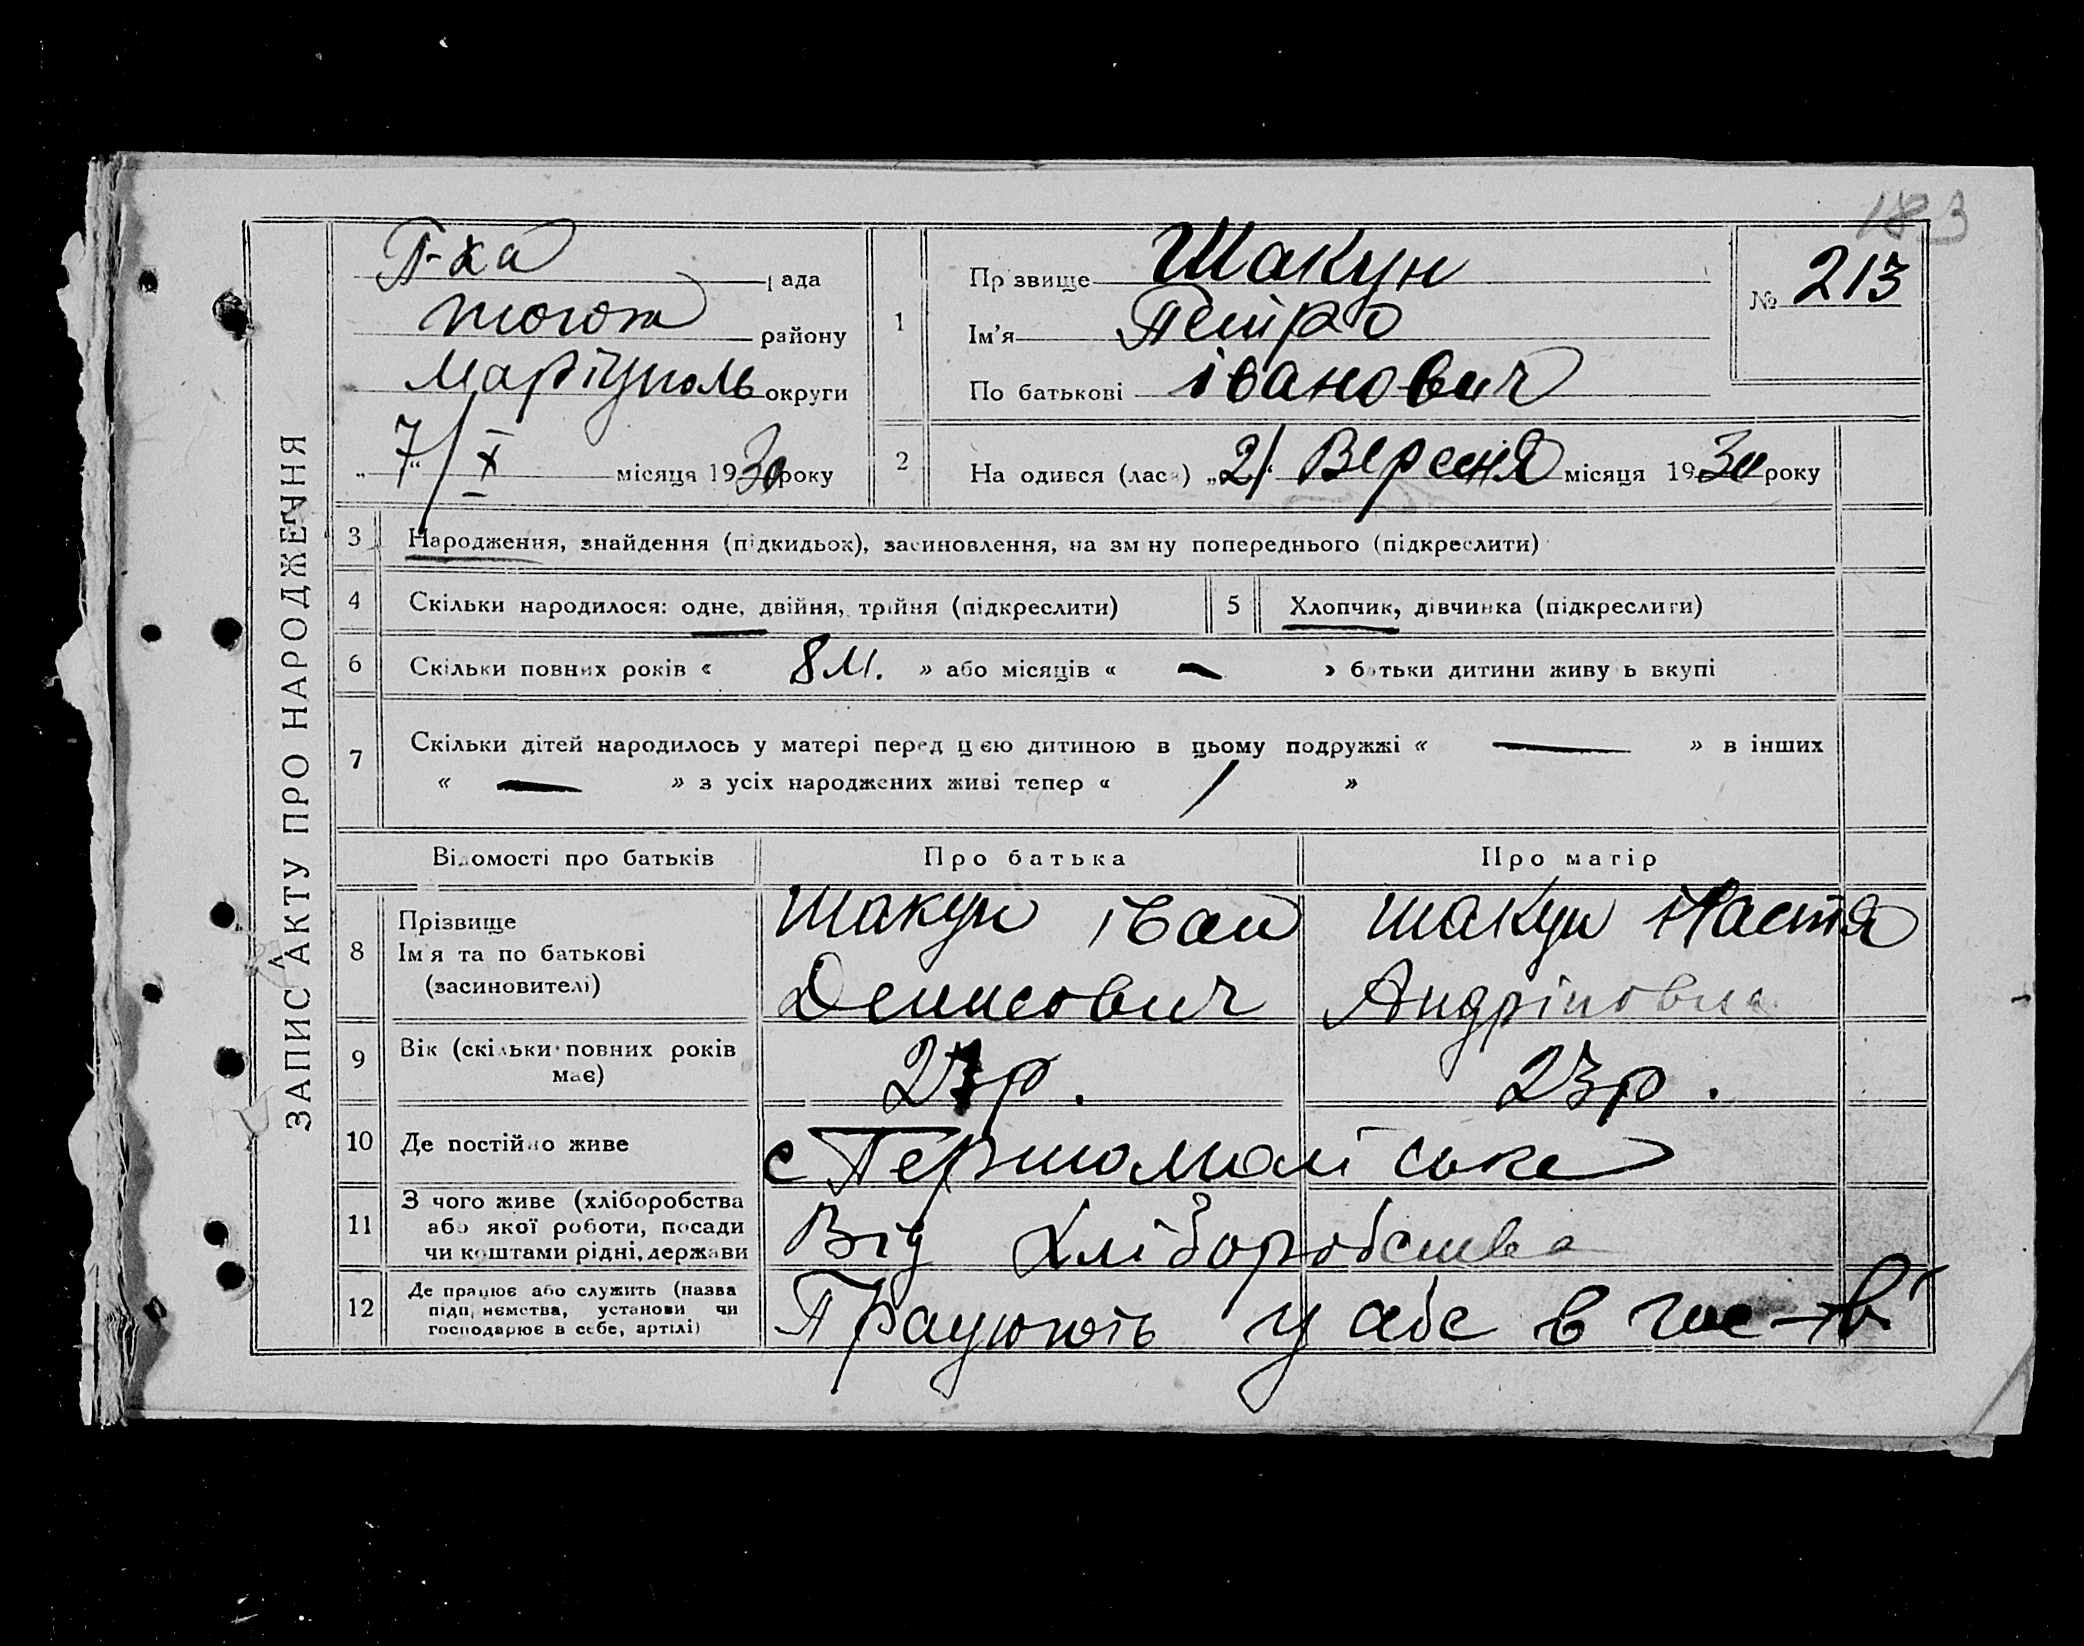 183
ЗАПИС АКТУ ПРО НАРОДЖЕННЯ
П-ка рада
того ж району
Маріуполь округи
„7“ X місяця 1930 року
1
Прізвище Шакун
Ім'я Петро
По батькові іванович
№ 213
2
На одився (лася) „21“ Вересня місяця 1930 року
3 Народження, знайдення (підкидьок), засиновлення, на зміну попереднього (підкреслити)
4 Скільки народилося: одне, двійня, трійня (підкреслити)
5 Хлопчик, дівчинка (підкреслити)
6 Скільки повних років « 8 м. » або місяців « — » батьки дитини живуть вкупі
7 Скільки дітей народилось у матері перед цією дитиною в цьому подружжі « — » в інших
« — » з усіх народжених живі тепер « / »
Відомості про батьків Про батька Про матір
8 Прізвище
Ім'я та по батькові
(засиновителі)
Шакун іван
Денисович
Шакун Настя
Андріповна
9 Вік (скільки повних років має) 27р. 23р.
10 Де постійно живе с Першомайське
11 З чого живе (хліборобства
або якої роботи, посади
чи коштами рідні, держави
Від хліборобства
12 Де працює або служить (назва
підприємства, установи чи
господарює в себе, артілі)
Працюють у себе в гос-тві